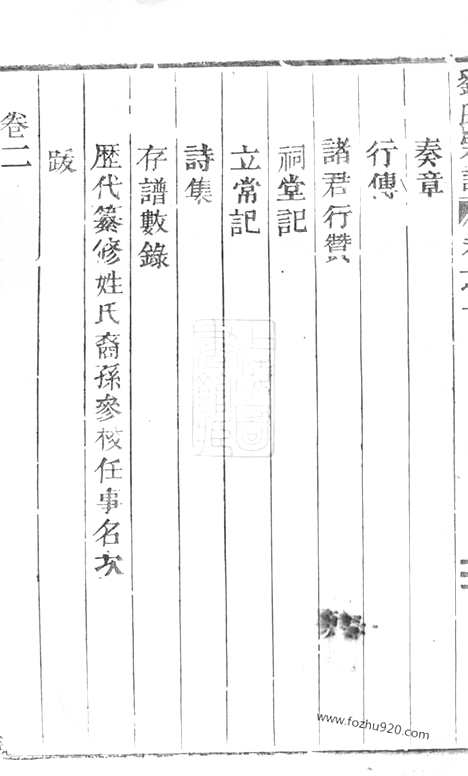 奏章
行傳
諸君行贊
祠堂記
立常記
詩集
存譜數錄
歷代纂修姓氏裔孫參校任事名次
跋
卷二
www.fozhu920.com